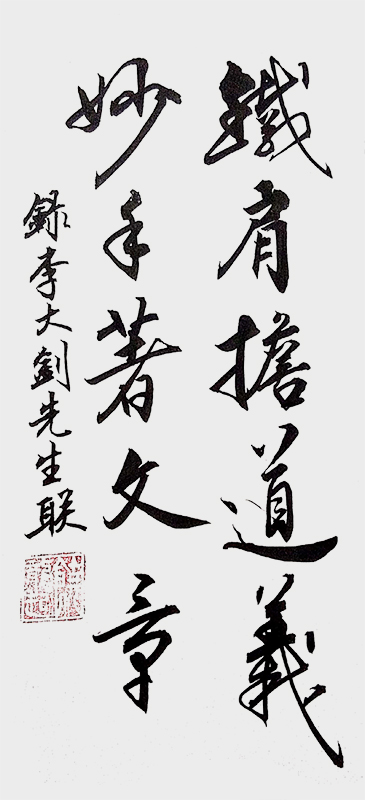 鐵肩擔道義
妙手著文章
錄李大釗先生联